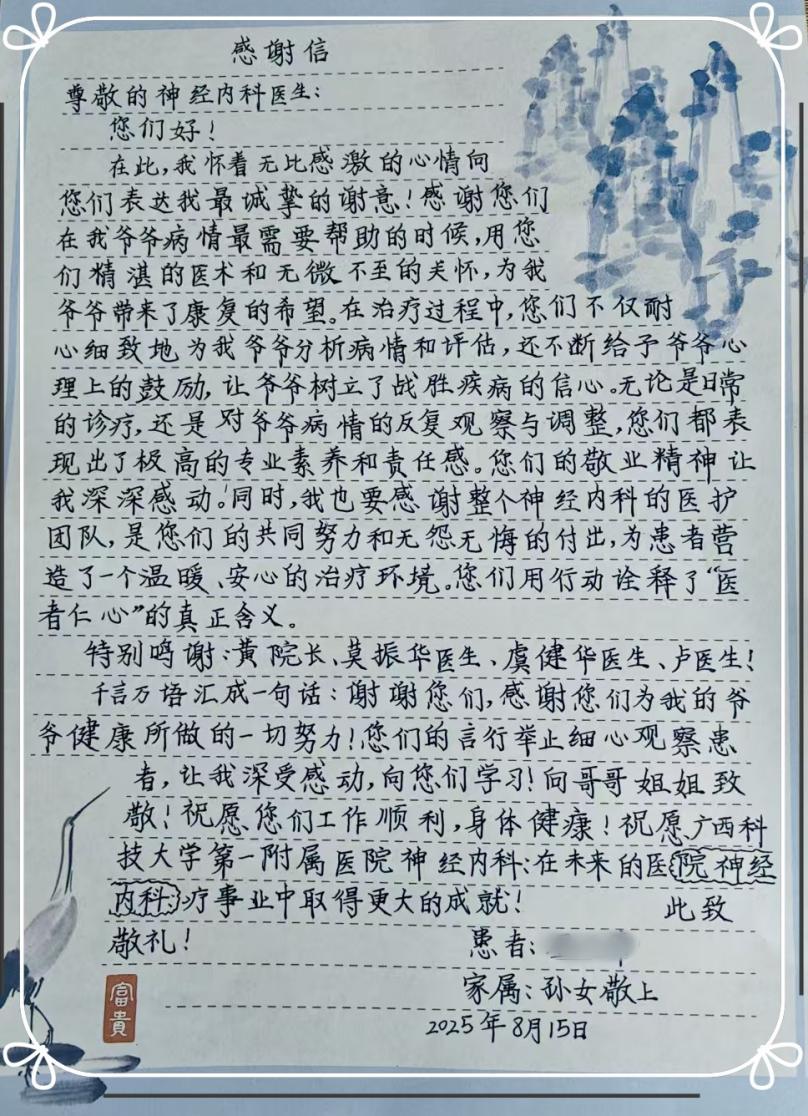 感谢信
尊敬的神经内科医生：
您们好！
在此，我怀着无比感激的心情向
您们表达我最诚挚的谢意！感谢您们
在我爷爷病情最需要帮助的时候，用您
们精湛的医术和无微不至的关怀，为我
爷爷带来了康复的希望。在治疗过程中，您们不仅耐
心细致地为我爷爷分析病情和评估，还不断给予爷爷心
理上的鼓励，让爷爷树立了战胜疾病的信心。无论是日常
的诊疗，还是对爷爷病情的反复观察与调整，您们都表
现出了极高的专业素养和责任感。您们的敬业精神让
我深深感动。同时，我也要感谢整个神经内科的医护
团队，是您们的共同努力和无怨无悔的付出，为患者营
造了一个温暖、安心的治疗环境。您们用行动诠释了“医
者仁心”的真正含义。
特别鸣谢：黄院长、莫振华医生、虞健华医生、卢医生！
千言万语汇成一句话：谢谢您们，感谢您们为我的爷
爷健康所做的一切努力！您们的言行举止细心观察患
者，让我深受感动，向您们学习！向哥哥姐姐致
敬！祝愿您们工作顺利，身体健康！祝愿广西科
技大学第一附属医院神经内科：在未来的医院神经
内科：疗事业中取得更大的成就！ 此致
敬礼！ 患者：
家属：孙女敬上
富貴
2025年8月15日